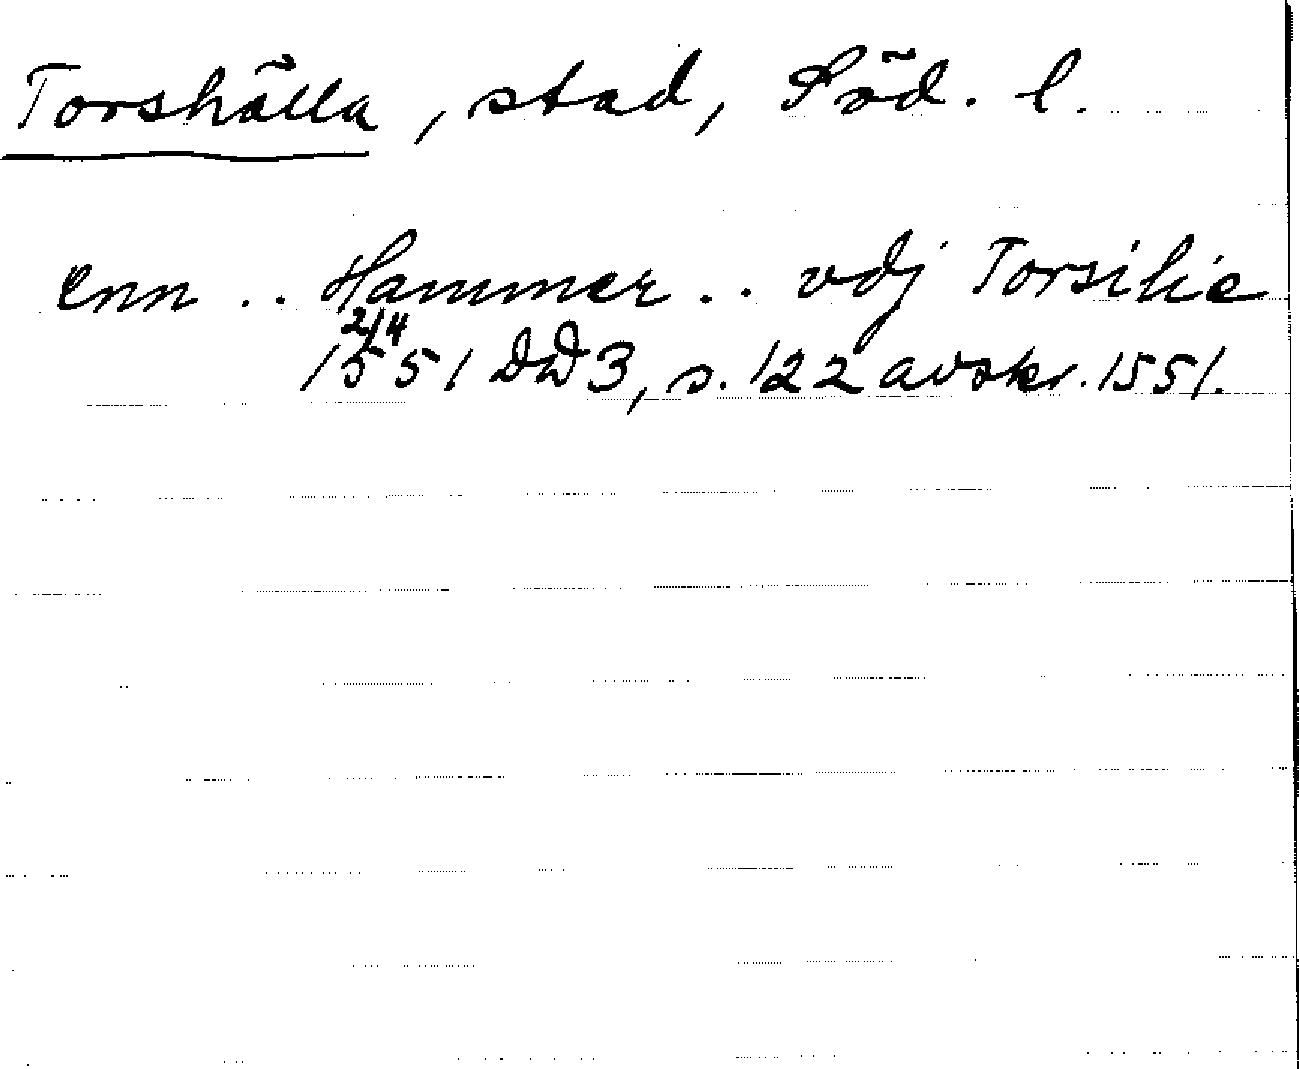 Torshälla, stad, Söd. l.
enn .. Hammer .. vdj Torsilie
2/4
1551 DD 3, s. 122 avskr. 1551.